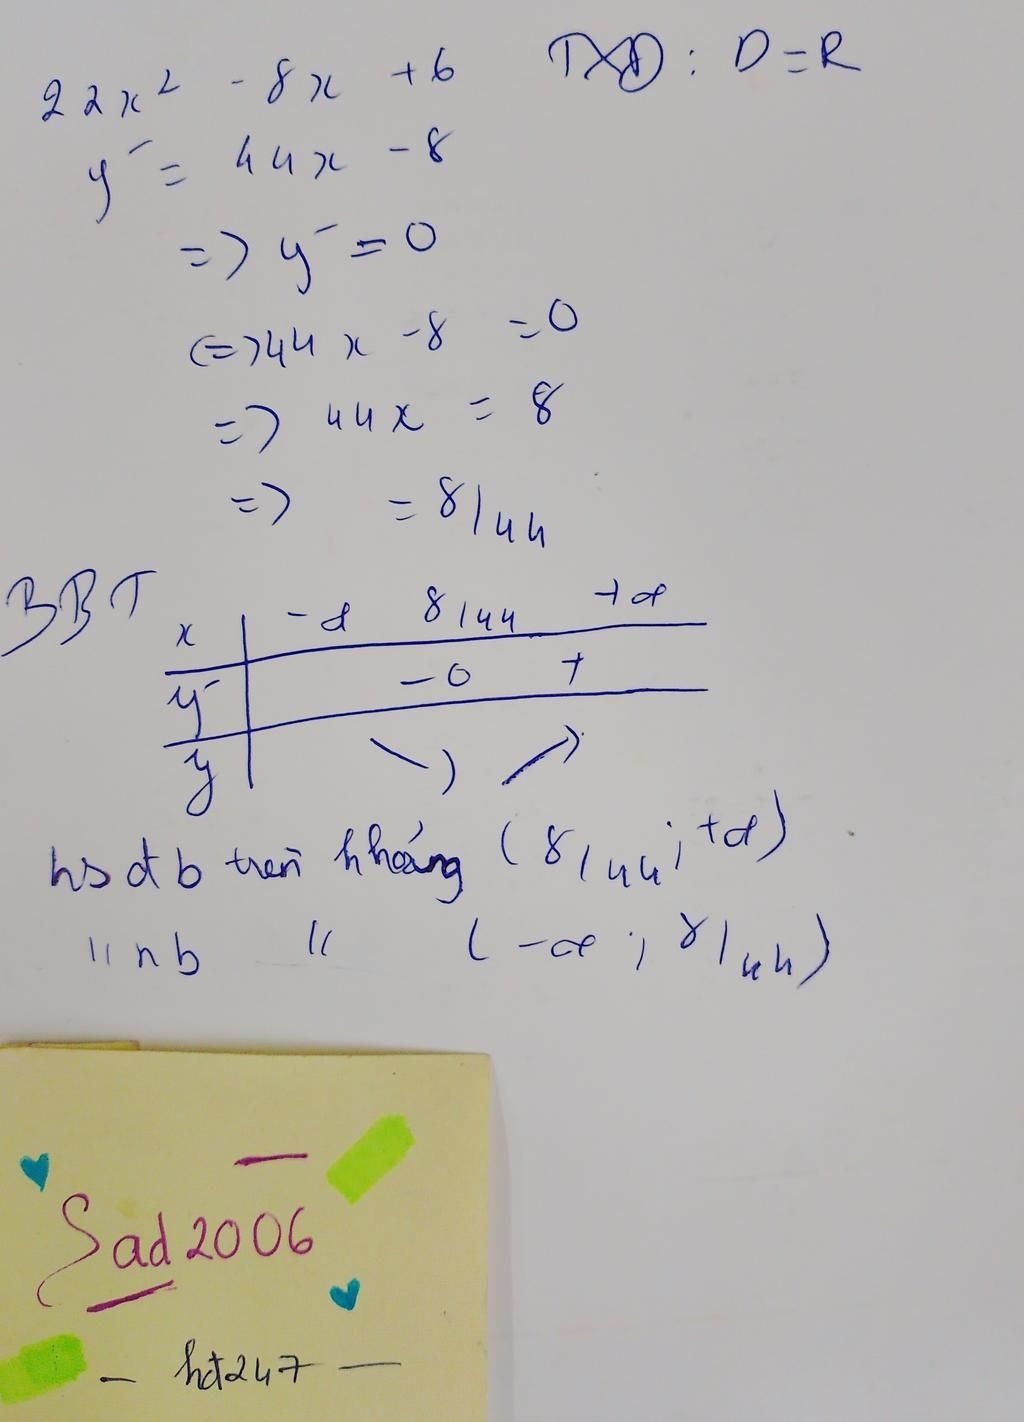 22x² - 8x + 6 TXĐ: D = R
y' = 44x - 8
=> y' = 0
<=> 44x - 8 = 0
=> 44x = 8
=> = 8/44
BBT
x -∞ 8/44 +∞
y' - 0 +
y
hs đb trên khoảng (8/44; +∞)
" nb " (-∞; 8/44)
Sad2006
- hđ247 -